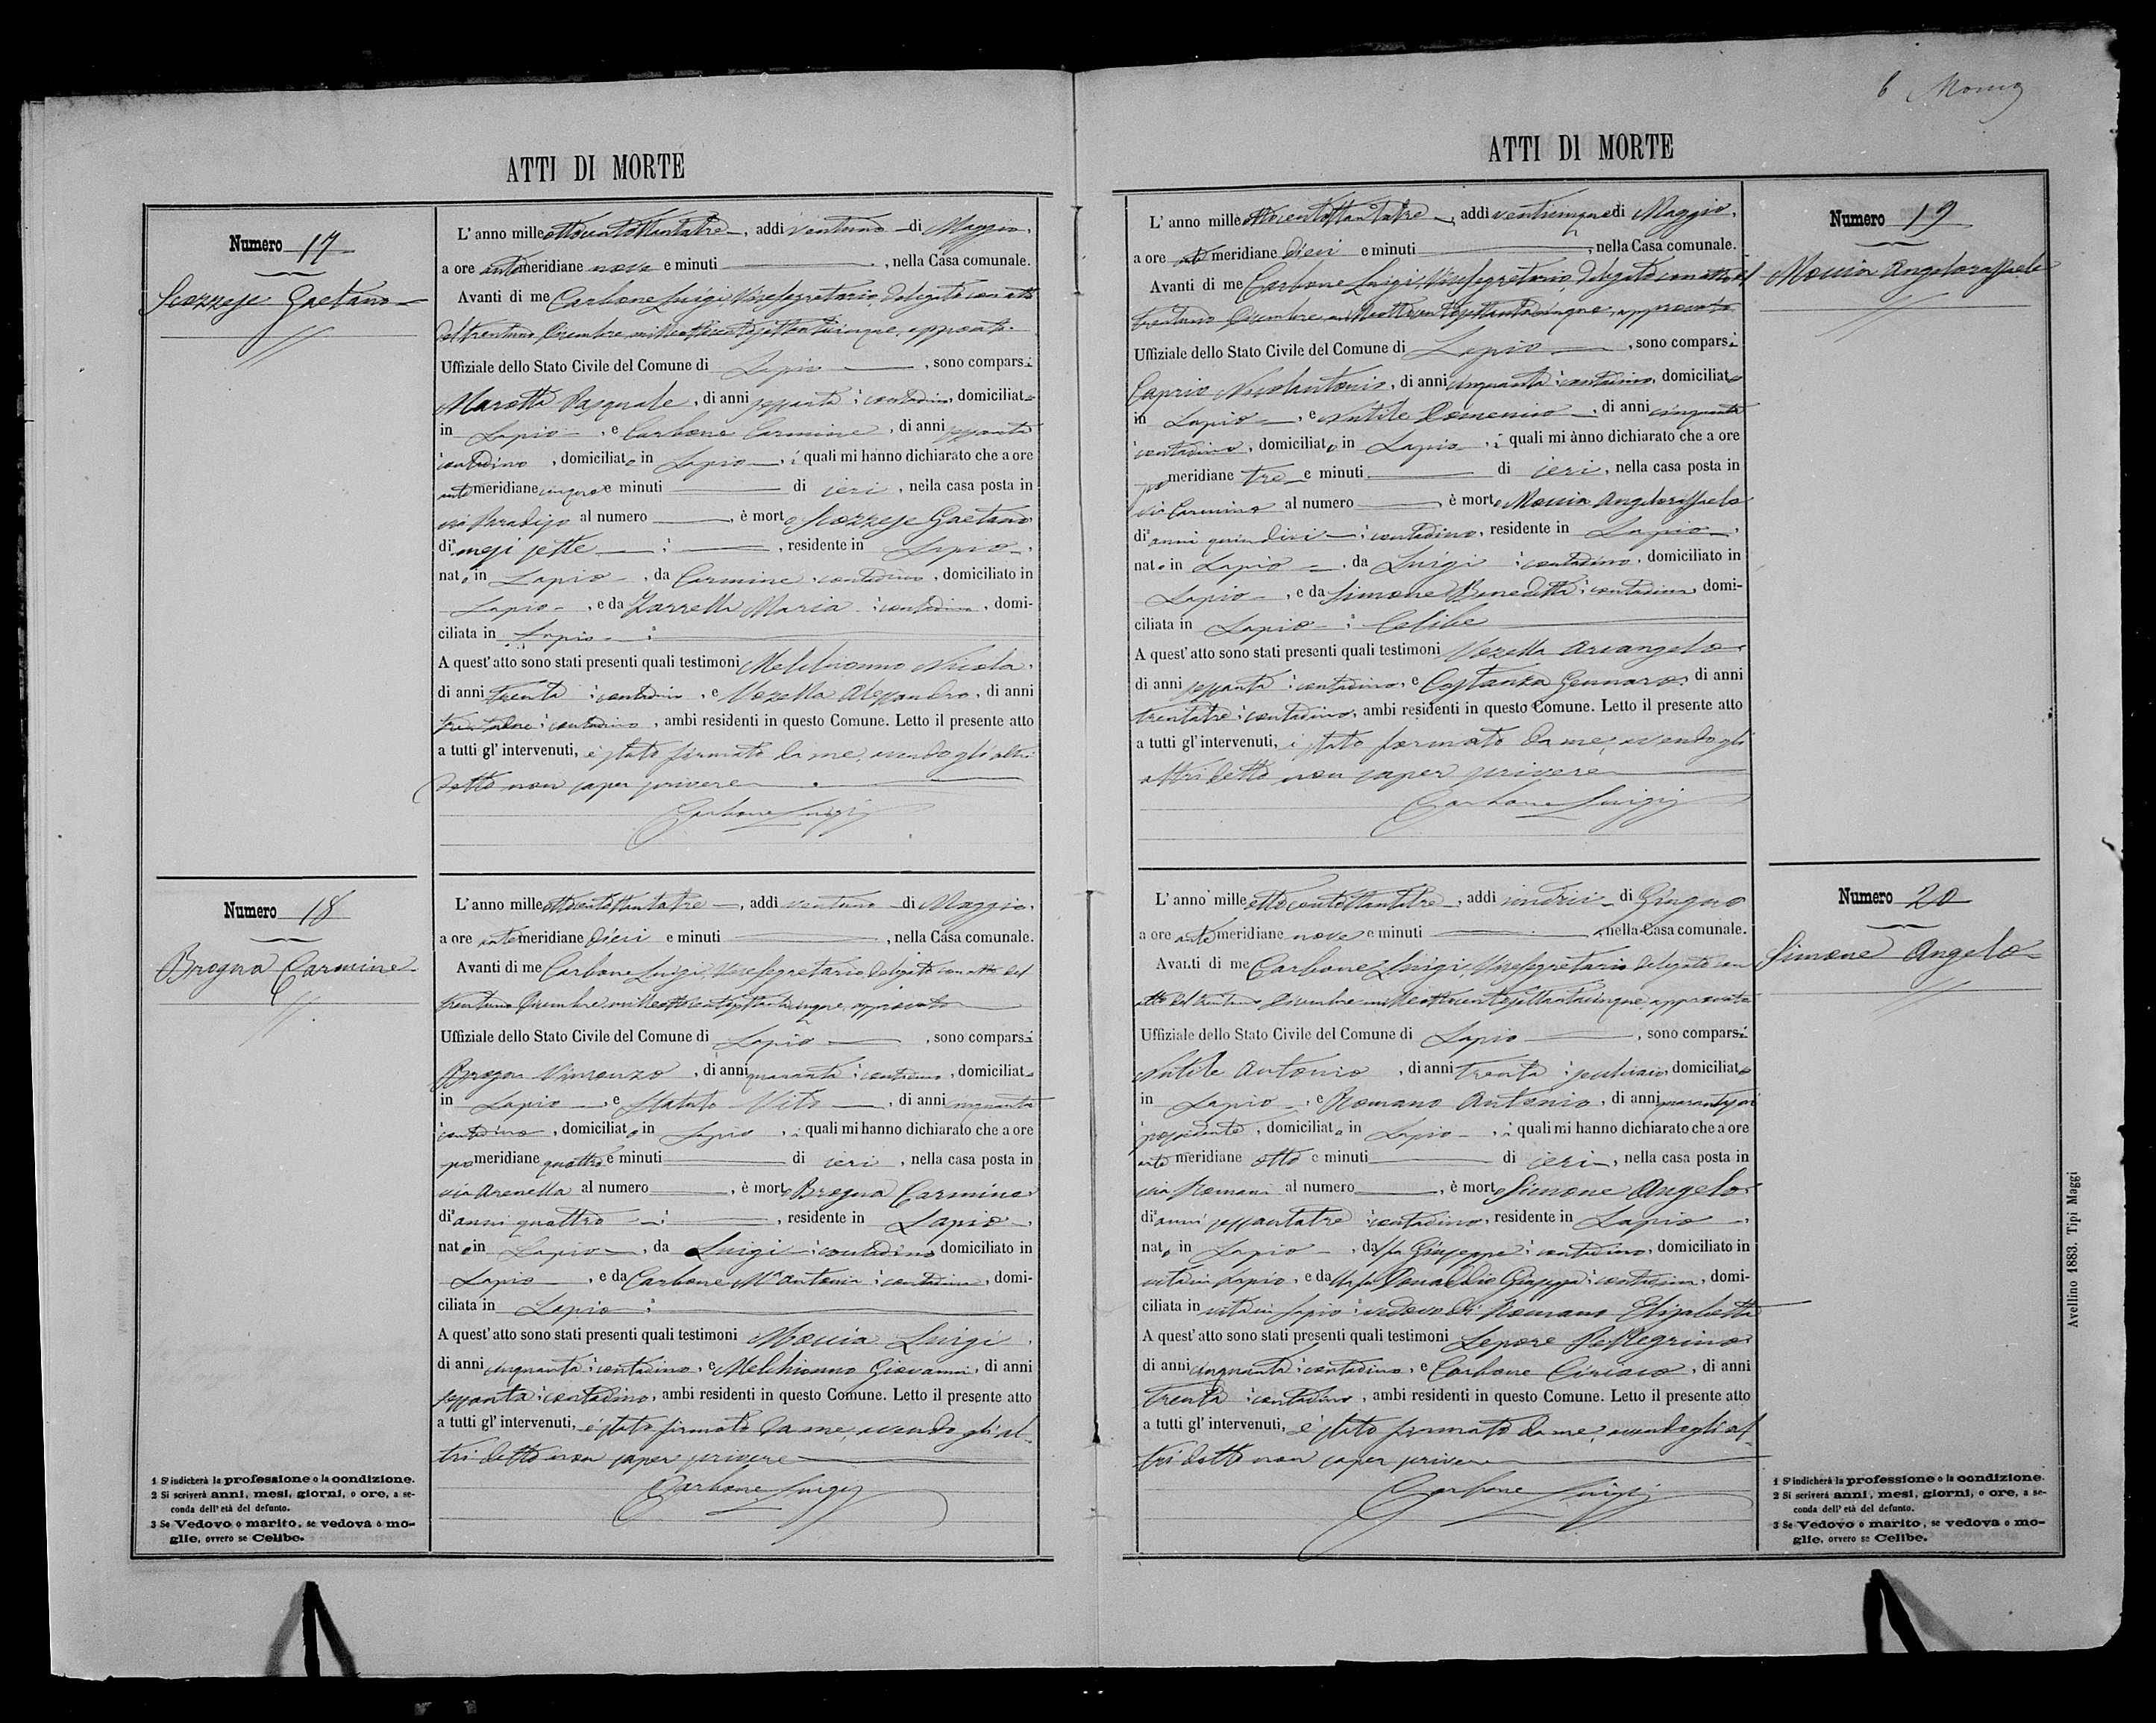 ATTI DI MORTE
Numero 17
Scozzese Gaetano
L'anno mille ottocentottantatre, addi ventuno di Maggio,
a ore antemeridiane nove e minuti , nella Casa comunale.
Avanti di me Carbone Luigi Vicesegretario delegato con atto
del trentuno Dicembre milleottocentosettantacinque, approvato
Uffiziale dello Stato Civile del Comune di Lapio, sono comparsi
Marotta Pasquale, di anni sessanta, contadino, domiciliato
in Lapio, e Carbone Carmine, di anni sessanta
contadino, domiciliato in Lapio, i quali mi hanno dichiarato che a ore
antemeridiane cinque e minuti di ieri, nella casa posta in
via Paradiso al numero , è morto Scozzese Gaetano
di mesi sette , residente in Lapio,
nato in Lapio, da Carmine, contadino, domiciliato in
Lapio, e da Zarrella Maria, contadina, domi-
ciliata in Lapio
A quest'atto sono stati presenti quali testimoni Melchionno Nicola,
di anni trenta, contadino, e Vozella Alessandro, di anni
contadino, ambi residenti in questo Comune. Letto il presente atto
a tutti gl'intervenuti, è stato firmato da me, avendo gli altri
detto non saper scrivere
Carbone Luigi
Numero 18
Brogna Carmine
L'anno mille ottocentottantatre, addi ventuno di Maggio,
a ore antemeridiane dieci e minuti , nella Casa comunale.
Avanti di me Carbone Luigi, Vicesegretario delegato con atto del
trentuno Dicembre milleottocentosettantacinque, approvato
Uffiziale dello Stato Civile del Comune di Lapio, sono comparsi
Brogna Vincenzo, di anni quaranta, contadino, domiciliato
in Lapio, e Statuto Vito, di anni cinquanta
contadino, domiciliato in Lapio, i quali mi hanno dichiarato che a ore
pomeridiane quattro e minuti di ieri, nella casa posta in
via Arenella al numero , è morto Brogna Carmine
di anni quattro , residente in Lapio,
nato in Lapio, da Luigi, contadino domiciliato in
Lapio, e da Carbone Ma Antonia, contadina, domi-
ciliata in Lapio
A quest'atto sono stati presenti quali testimoni Moccia Luigi,
di anni cinquanta, contadino, e Melchionno Giovanni, di anni
sessanta, contadino, ambi residenti in questo Comune. Letto il presente atto
a tutti gl'intervenuti, è stato firmato da me, avendo gli al-
tri detto non saper scrivere
Carbone Luigi
1 S'indicherà la professione o la condizione.
2 Si scriverà anni, mesi, giorni, o ore, a se-
conda dell'età del defunto.
3 Se Vedovo o marito, se vedova o mo-
glie, ovvero se Celibe.
6
ATTI DI MORTE
Numero 19
Moccia Angeloraffaele
L'anno mille ottocentottantatre, addi venticinque di Maggio,
a ore antemeridiane dieci e minuti , nella Casa comunale.
Avanti di me Carbone Luigi, Vicesegretario delegato con atto del
trentuno Dicembre milleottocentosettantacinque, approvato
Uffiziale dello Stato Civile del Comune di Lapio, sono comparsi
Caprio Nicolantonio, di anni cinquanta, contadino, domiciliato
in Lapio, e Nutile Domenico, di anni cinquanta
contadino, domiciliato in Lapio, i quali mi ànno dichiarato che a ore
pomeridiane tre e minuti di ieri, nella casa posta in
via Carmine al numero , è morto Moccia Angeloraffaele
di anni quindici, contadino, residente in Lapio,
nato in Lapio, da Luigi, contadino, domiciliato in
Lapio, e da Simone Benedetta, contadina, domi-
ciliata in Lapio, Celibe
A quest'atto sono stati presenti quali testimoni Vozella Arcangelo
di anni sessanta, contadino, e Costanza Gennaro, di anni
trentatre, contadino, ambi residenti in questo Comune. Letto il presente atto
a tutti gl'intervenuti, è stato firmato da me, avendo gli
altri detto non saper scrivere
Carbone Luigi
Numero 20
Simone Angelo
L'anno mille ottocentottantatre, addi undici di Giugno
a ore antemeridiane nove e minuti , nella Casa comunale.
Avanti di me Carbone Luigi, Vicesegretario delegato con
atto del trentuno Dicembre milleottocentosettantacinque approvato
Uffiziale dello Stato Civile del Comune di Lapio, sono comparsi
Nutile Antonio, di anni trenta, domiciliato
in Lapio, e Romano Antonio, di anni quarantasei
possidente, domiciliato in Lapio, i quali mi hanno dichiarato che a ore
antemeridiane otto e minuti di ieri, nella casa posta in
via Romani al numero , è morto Simone Angelo
di anni sessantatre, contadino, residente in Lapio,
nato in Lapio, da fu Giuseppe, contadino, domiciliato in
vita in Lapio, e da fu Donaddio Giuseppa, contadina, domi-
ciliata in vita in Lapio, vedovo di Romano Elisabetta
A quest'atto sono stati presenti quali testimoni Lepore Pellegrino
di anni cinquanta, contadino, e Carbone Ciriaco, di anni
trenta, contadino, ambi residenti in questo Comune. Letto il presente atto
a tutti gl'intervenuti, è stato firmato da me, avendo gli al-
tri detto non saper scrivere
Carbone Luigi
1 S'indicherà la professione o la condizione.
2 Si scriverà anni, mesi, giorni, o ore, a se-
conda dell'età del defunto.
3 Se Vedovo o marito, se vedova o mo-
glie, ovvero se Celibe.
Avellino 1883. Tipi Maggi